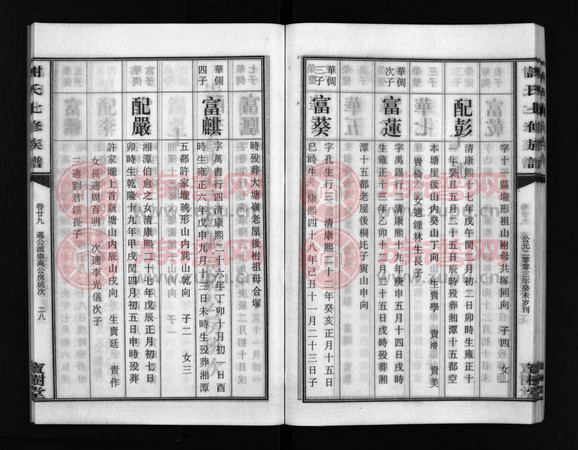 謝氏七修族譜
公元二零零三年癸未岁刊
寶樹堂
字十一區壠形祖山附母共塚同向 子四 女一
配彭
清康熙二十六年丁卯正月初二日卯時生雍正十
一年癸丑五月初五日辰時歿葬湘潭十五都空
本塘屋後山內癸山丁向 生貴學 貴濟 貴美
貴倫 一女適鍾林生長子
華倜次子
富蓮
字萬錫行二清康熙十九年庚申五月十四日戌時
生雍正十三年乙卯二月二十五日戌時歿葬湘
潭十五都老屋後桐坨子寅山申向
華倜三子
富葵
字孔生行三 清康熙二十二年癸亥正月十五日
巳時生 康熙四十八年己丑十一月二十三日子
時歿葬大塘嶺老屋後附祖母合塚
華倜四子
富麒
字萬書行四清康熙二十六年丁卯十月初一日酉
時生雍正六年戊申九月十三日未時歿葬湘潭
五都許家壠琬形山內巽山乾向 子二 女三
配嚴
湘潭伯愈之女清康熙二十七年戊辰正月初七日
卯時生乾隆十九年甲戌閏四月初五日申時歿葬
許家壠上首新塘山內辰山戌向 生貴廷 貴作
女長適周百明 次適李光儀次子
三適劉君錫長子
謝氏七修族譜
卷廿九 遜公派崇高公房班次 二八
寶樹堂